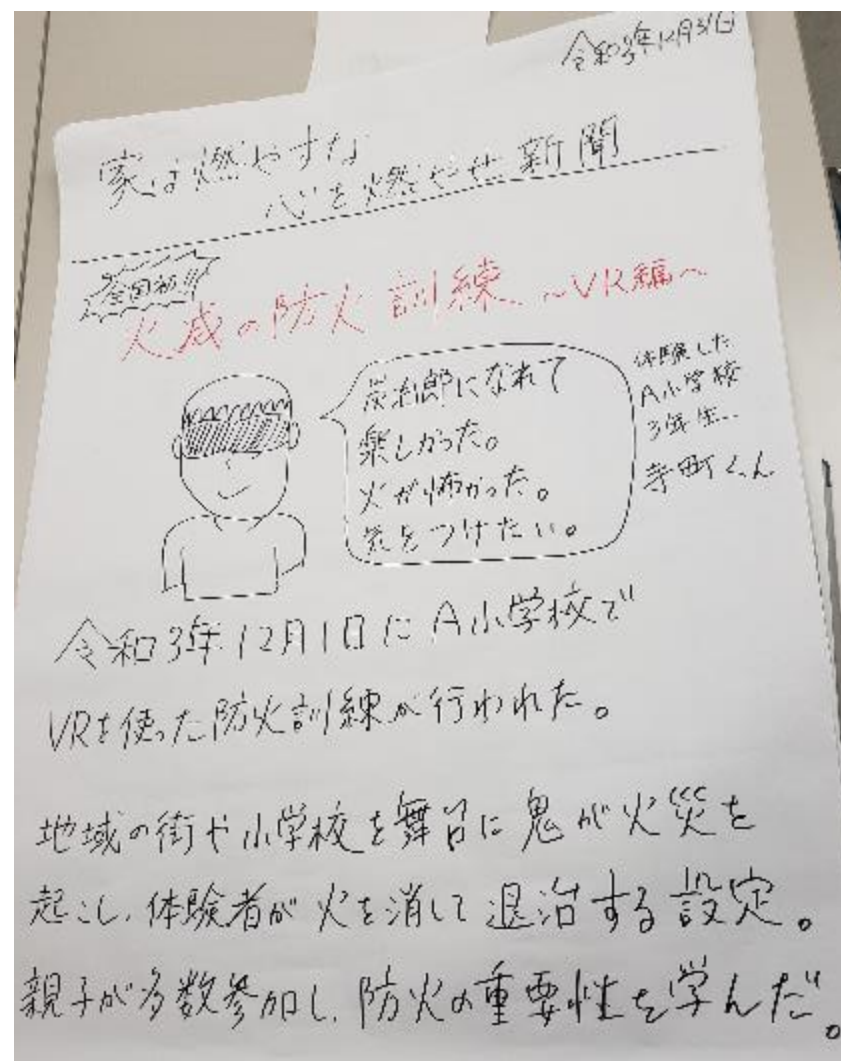 令和3年12月31日
家は燃やすな
心を燃やせ新聞
全国初!!
火成の防火訓練 ~VR編~
炭治郎になれて
楽しかった。
火が怖かった。
気をつけたい。
体験した
A小学校
3年生..
寺町くん
令和3年12月1日にA小学校で
VRを使った防火訓練が行われた。
地域の街や小学校を舞台に鬼が火災を
起こし、体験者が火を消して退治する設定。
親子が多数参加し、防火の重要性を学んだ。